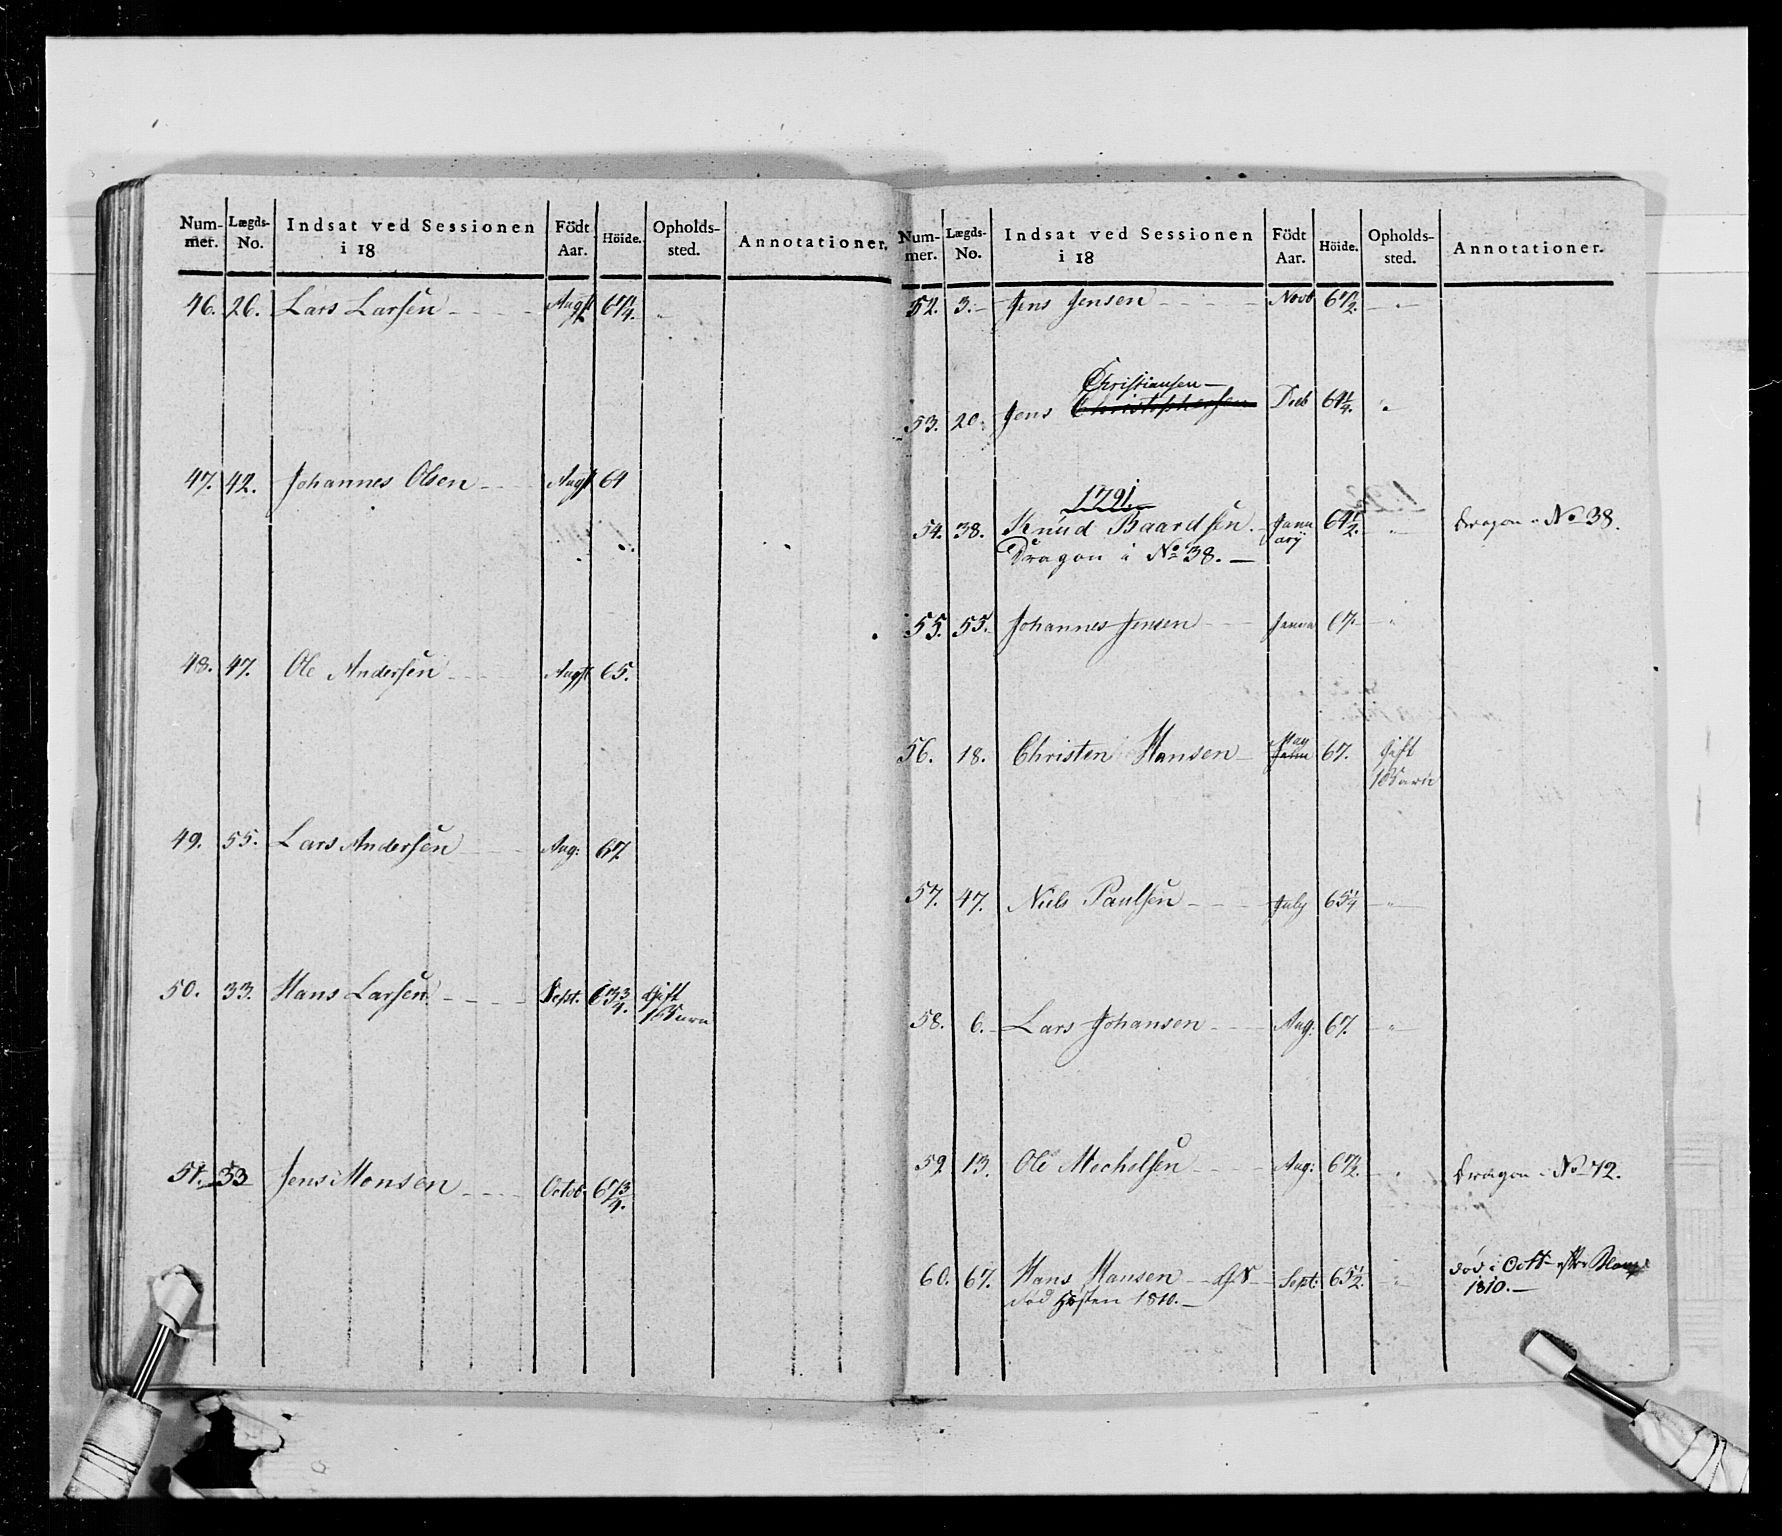 Num- Lægds- Indsat ved Sessionen Födt Höide. Opholds- Annotationer.
mer. No. i 18 Aar. sted.
46. 26. Lars Larsen Augst 61 1/4.
47. 42. Johannes Olsen Augst 64
48. 47. Ole Andersen Augst 65.
49. 55. Lars Andersen Aug: 67.
50. 33. Hans Larsen Sept. 63 3/4. Gift
1 Barn
51. 33 Jens Monsen Octob. 67 3/4.
Num- Lægds- Indsat ved Sessionen Födt Höide. Opholds- Annotationer.
mer. No. i 18 Aar. sted.
52. 3. Jens Jensen Novb 67 1/2. "
Christiansen
53. 20. Jens Christophersen Decb 64 1/4. "
1791.
54. 38. Knud Baardsen Janu 64 1/2. " Dragon No 38.
ary
Dragon i No 38.
55. 55. Johannes Jensen Janu 67 "
May
56. 18. Christen Hansen 67. Gift
1 Barn
57. 47. Niels Paulsen July 65 1/4 "
58. 6. Lars Johansen Aug: 67. "
59 13. Ole Mechelsen Aug: 67 1/2. " Dragon No 72.
60. 67. Hans Hansen Sept: 65 1/2. " død i Octb
død Høsten 1810. 1810.